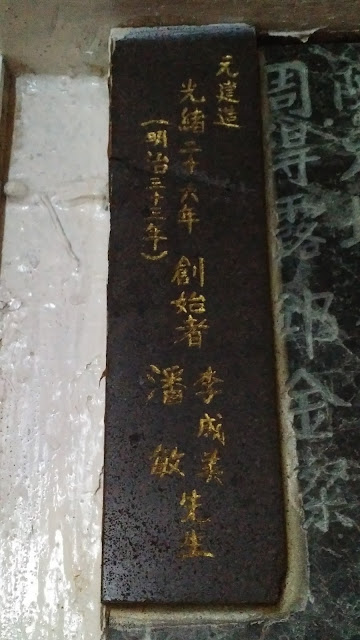 周得露邱金粲
元建造
光緒二十六年 創始者
(明治三十三年)
李成美
潘敏
先生